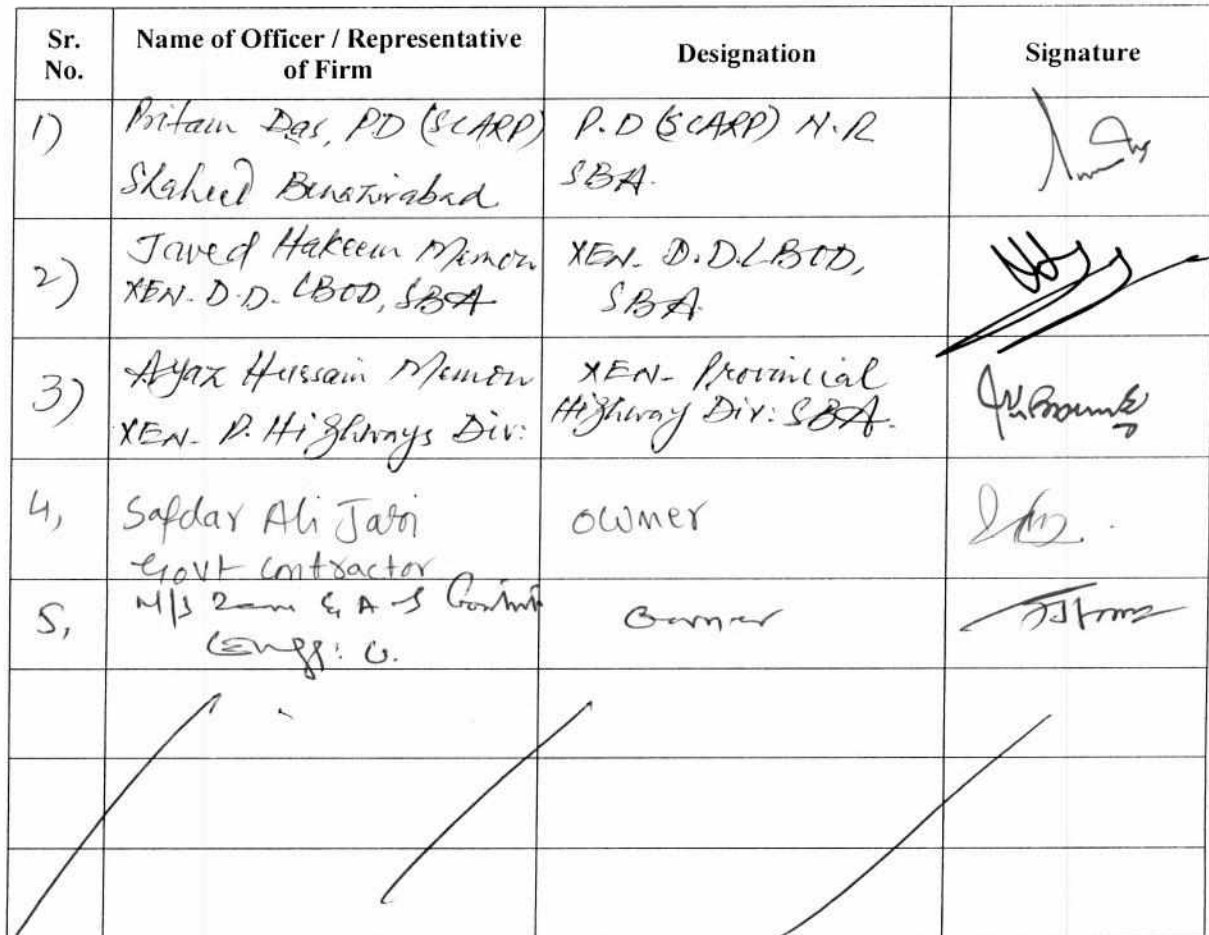 Sr. No.
Name of Officer / Representative of Firm
Designation
Signature
1)
Pritam Das, PD (SCARP)
Shaheed Benazirabad
P.D (SCARP) N.R
SBA.
2)
Javed Hakeem Memon
XEN. D.D. LBOD, SBA
XEN. D.D. LBOD,
SBA.
3)
Ayaz Hussain Memon
XEN- P. Highways Div:
XEN- Provincial
Highway Div: SBA.
4,
Safdar Ali
Govt contractor
owner
5,
M/s & A
Engg: